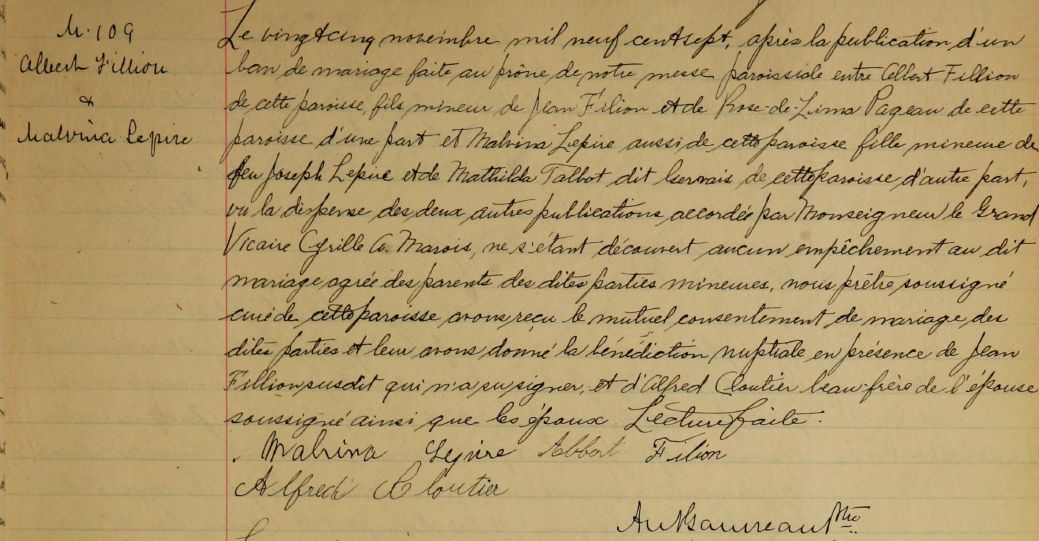 M. 109
Albert Fillion
&
Malvina Lepire
Le vingtcinq novembre mil neuf centsept, après la publication d'un
ban de mariage faite au prône de notre messe paroissiale entre Albert Fillion
de cette paroisse, fils mineur de Jean Filion et de Rose-de-Lima Pageau de cette
paroisse d'une part et Malvina Lepire aussi de cette paroisse fille mineure de
feu Joseph Lepire et de Mathilda Talbot dit Gervais de cette paroisse d'autre part,
vu la dispense des deux autres publications accordée par Monseigneur le Grand
Vicaire Cyrille A. Marois, ne s'étant découvert aucun empêchement au dit
mariage agrée des parents des dites parties mineures, nous prêtre soussigné
curé de cette paroisse avons reçu le mutuel consentement de mariage des
dites parties et leur avons donné la bénédiction nuptiale en présence de Jean
Fillion susdit qui n'a su signer, et d'Alfred Cloutier beau-frère de l'épouse
soussigné ainsi que les époux. Lecture faite.
Malvina Lepire Albert Filion
Alfred Cloutier
Ptre